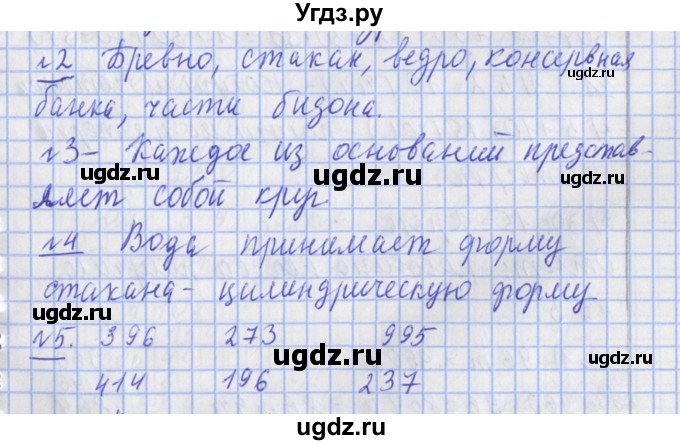 Угдз.ру
№2 Бревно, стакан, ведро, консервная
банка, части бизона.
№3 - Каждое из оснований представ-
ляет собой круг
№4 Вода принимает форму
стакана - цилиндрическую форму
№5. 396 273 995
414 196 237
ugdz.ru
ugdz.ru
ugdz.ru
ugdz.ru
ugdz.ru
ugdz.ru
ugdz.ru
ugdz.ru
ugdz.ru
ugdz.ru
ugdz.ru
ugdz.ru